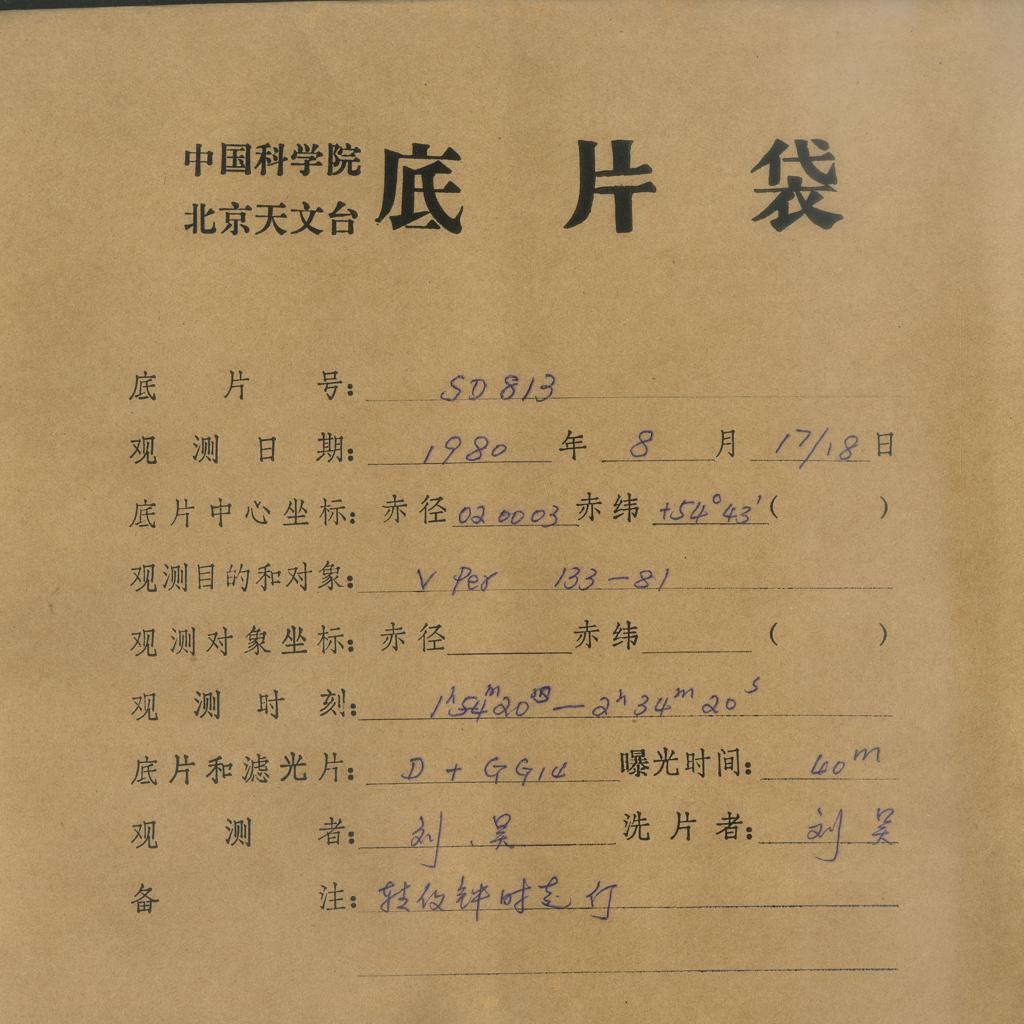 中国科学院
北京天文台
底片袋
底片号: SD 813
观测日期: 1980 年 8 月 17/18 日
底片中心坐标: 赤径 020003 赤纬 +54°43′ ( )
观测目的和对象: V Per 133-81
观测对象坐标: 赤径 赤纬 ( )
观测时刻: 1h54m20s — 2h34m20s
底片和滤光片: D + GG14 曝光时间: 40m
观测者: 刘. 吴 洗片者: 刘 吴
备注: 钟时